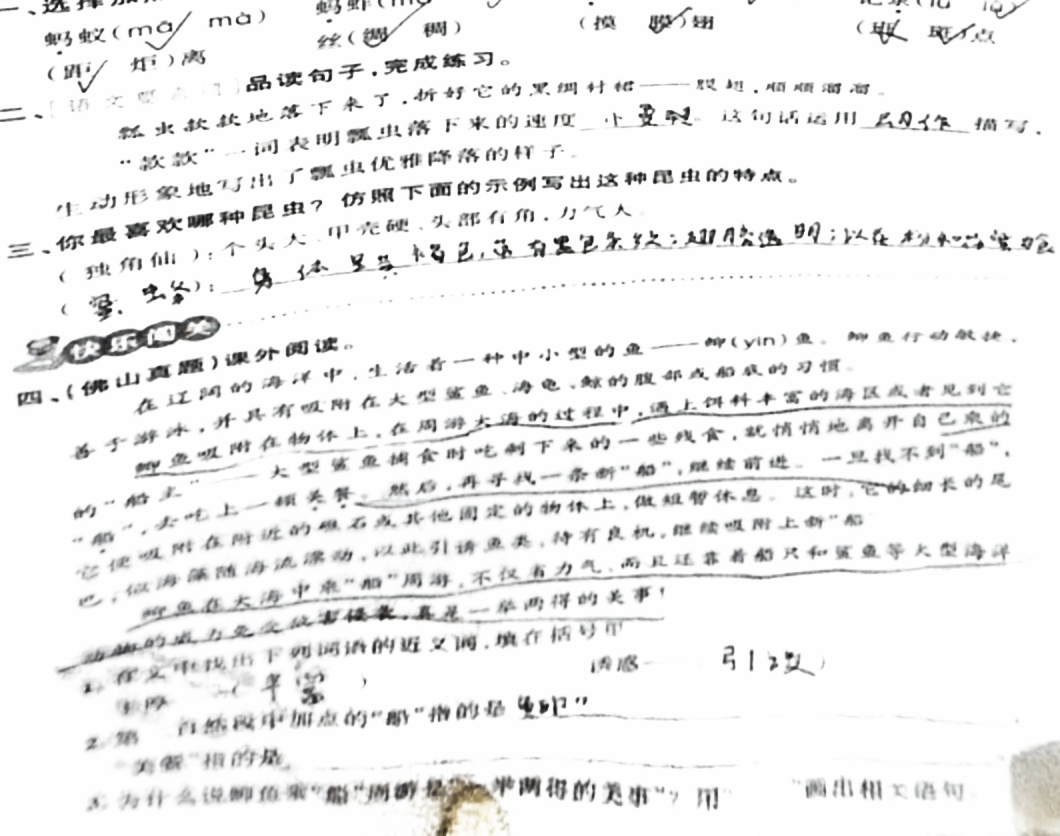 一、选择
蚂蚁(mǎ mà) 蚂蚱(mà
(距 炬)离 丝(绸 稠) (摸 膜)翅 (班 斑)点
二、品读句子,完成练习。
瓢虫款款地落下来了,折好它的黑绸衬裙——膜翅,顺顺溜溜。
“款款”一词表明瓢虫落下来的速度 这句话运用 动作 描写,
生动形象地写出了瓢虫优雅降落的样子。
三、你最喜欢哪种昆虫?仿照下面的示例写出这种昆虫的特点。
(独角仙):个头大、甲壳硬、头部有角,力气大
( ): 身体呈 褐色, 有黑色条纹;翅膀透明;以花粉和
快乐闯关
四、(佛山真题)课外阅读。
在辽阔的海洋中,生活着一种中小型的鱼——䲟(yìn)鱼。䲟鱼行动敏捷,
善于游泳,并具有吸附在大型鲨鱼、海龟、鲸的腹部或船底的习惯。
䲟鱼吸附在物体上,在周游大海的过程中,遇上饵料丰富的海区或者见到它
的“船主”——大型鲨鱼捕食时吃剩下来的一些残食,就悄悄地离开自己乘的
“船”,去吃上一顿美餐。然后,再寻找一条新“船”,继续前进。一旦找不到“船”,
它便吸附在附近的礁石或其他固定的物体上,做短暂休息。这时,它的细长的尾
巴,似海藻随海流漂动,以此引诱鱼类,待有良机,继续吸附上新“船
䲟鱼在大海中乘“船”周游,不仅省力气,而且还靠着船只和鲨鱼等大型海洋
动物的威力免受敌害侵袭,真是一举两得的美事!
1. 在文中找出下列词语的近义词,填在括号中
丰厚 (丰富) 诱惑—— 引诱)
2. 第 自然段中加点的“船”指的是
美餐”指的是
3. 为什么说䲟鱼乘“船”周游是“一举两得的美事”?用“ ”画出相关语句